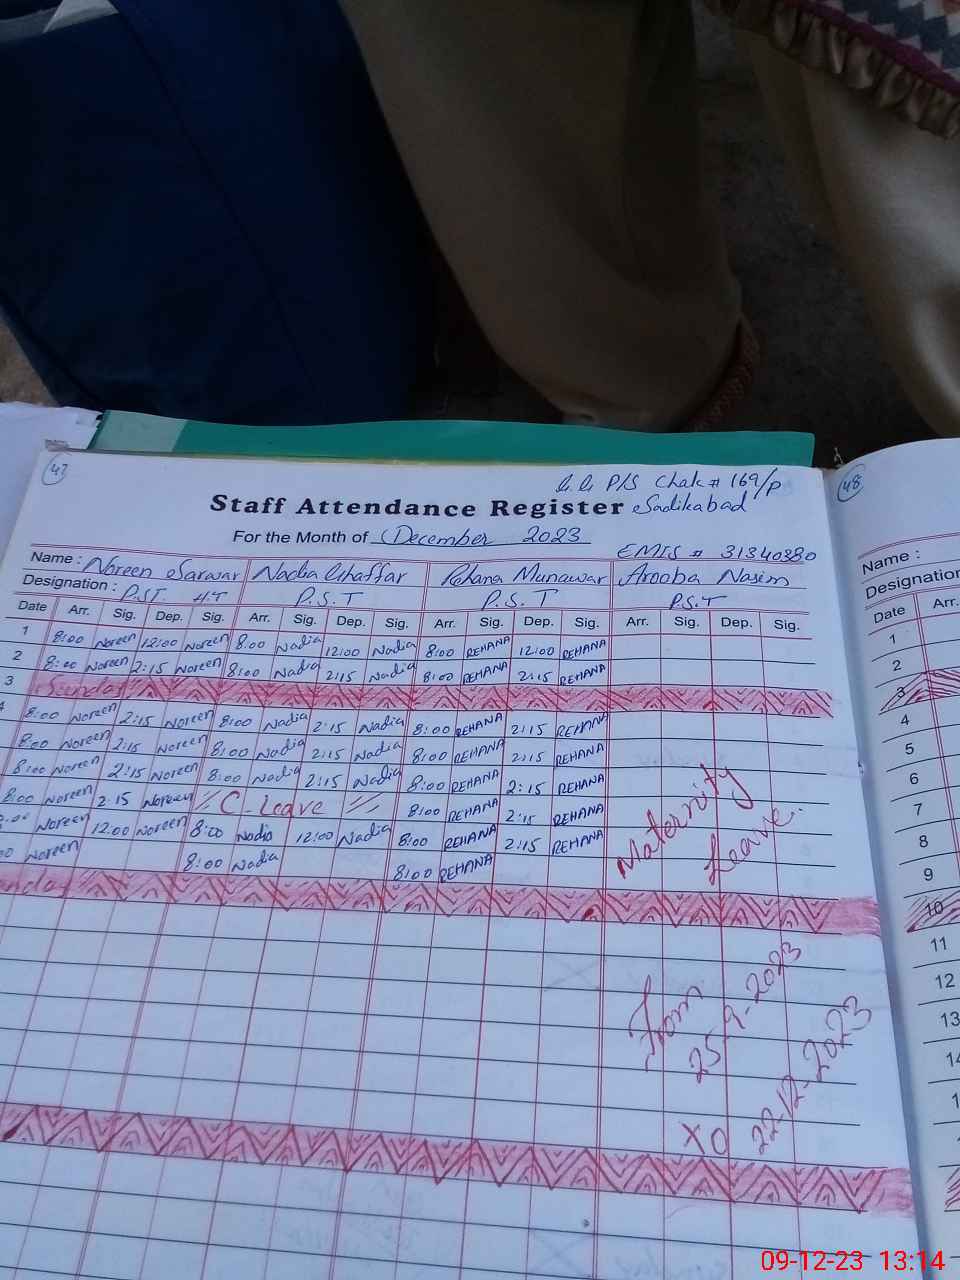 47
G.G. P/S Chak # 169/P
Staff Attendance Register Sadikabad
For the Month of December 2023
EMIS # 31340380
Name : Noreen Sarwar Nadia Ghaffar Rehana Munawar Arooba Nasim
Designation : P.S.T H.T P.S.T P.S.T P.S.T
Date Arr. Sig. Dep. Sig. Arr. Sig. Dep. Sig. Arr. Sig. Dep. Sig. Arr. Sig. Dep. Sig.
1 8:00 Noreen 12:00 Noreen 8:00 Nadia 12:00 Nadia 8:00 REHANA 12:00 REHANA
2 8:00 Noreen 2:15 Noreen 8:00 Nadia 2:15 Nadia 8:00 REHANA 2:15 REHANA
3 Sunday
4 8:00 Noreen 2:15 Noreen 8:00 Nadia 2:15 Nadia 8:00 REHANA 2:15 REHANA
8:00 Noreen 2:15 Noreen 8:00 Nadia 2:15 Nadia 8:00 REHANA 2:15 REHANA
8:00 Noreen 2:15 Noreen 8:00 Nadia 2:15 Nadia 8:00 REHANA 2:15 REHANA
8:00 Noreen 2:15 Noreen // C-Leave // 8:00 REHANA 2:15 REHANA
:00 Noreen 12:00 Noreen 8:00 Nadia 12:00 Nadia 8:00 REHANA 2:15 REHANA
00 Noreen 8:00 Nadia 8:00 REHANA
nday
Maternity
Leave.
From
25-9-2023
To
22-12-2023
48
Name :
Designation
Date Arr.
1
2
3
4
5
6
7
8
9
10
11
12
13
14
09-12-23 13:14